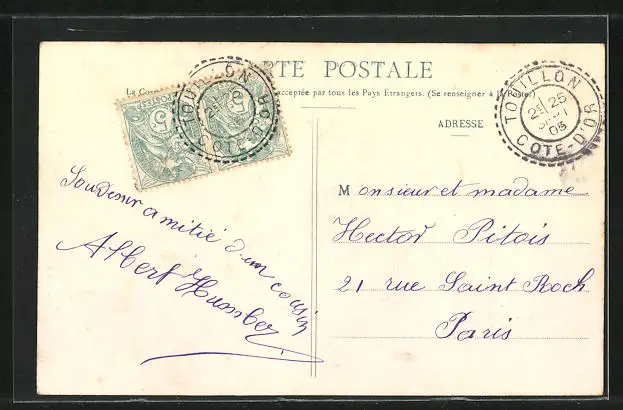 RTE POSTALE
acceptée par tous les Pays Étrangers. (Se renseigner à la Poste
ADRESSE
TOUILLON
2E 25
05
COTE-D'OR
TOUILLON
COTE-D'OR
POSTES
5
5
Souvenir amitié d'un cousin
Albert Humbert
Monsieur et madame
Hector Pitois
21 rue Saint Roch
Paris